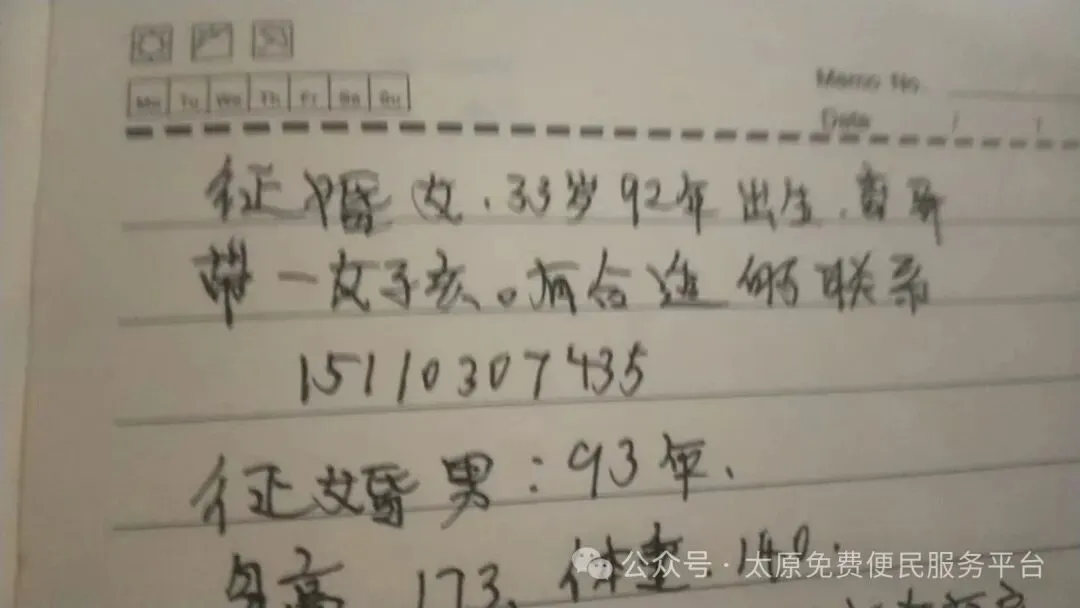 Mo Tu We Th Fr Sa Su
Memo No.
Date / /
征婚女.33岁92年出生.离婚
带一女子孩。有合适的联系
15110307435
征婚男:93年、
身高 173. 体重.140.
公众号·太原免费便民服务平台